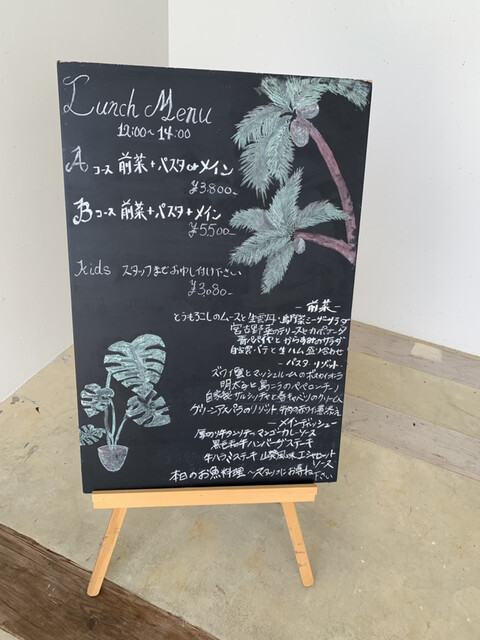 Lunch Menu
12:00~14:00
A コース 前菜+パスタorメイン
¥3,800-
B コース 前菜+パスタ+メイン
¥5,500-
Kids スタッフまでお申し付け下さい
¥3,080-
- 前菜 -
とうもろこしのムースと生雲丹・
宮古野菜のテリーヌと
青パパイヤとからすみのサラダ
自家製パテと生ハム盛り合わせ
- パスタ・リゾット -
ズワイ蟹とマッシュルームの
明太子と島ニラのペペロンチーノ
自家製サルシッチャと春キャベツのクリーム
グリーンアスパラのリゾット
- メインディッシュ -
マンゴーカレーソース
黒毛和牛ハンバーグステーキ
牛ハラミステーキ 山葵風味エシャロット
ソース
本日のお魚料理 ~スタッフにお尋ね下さい